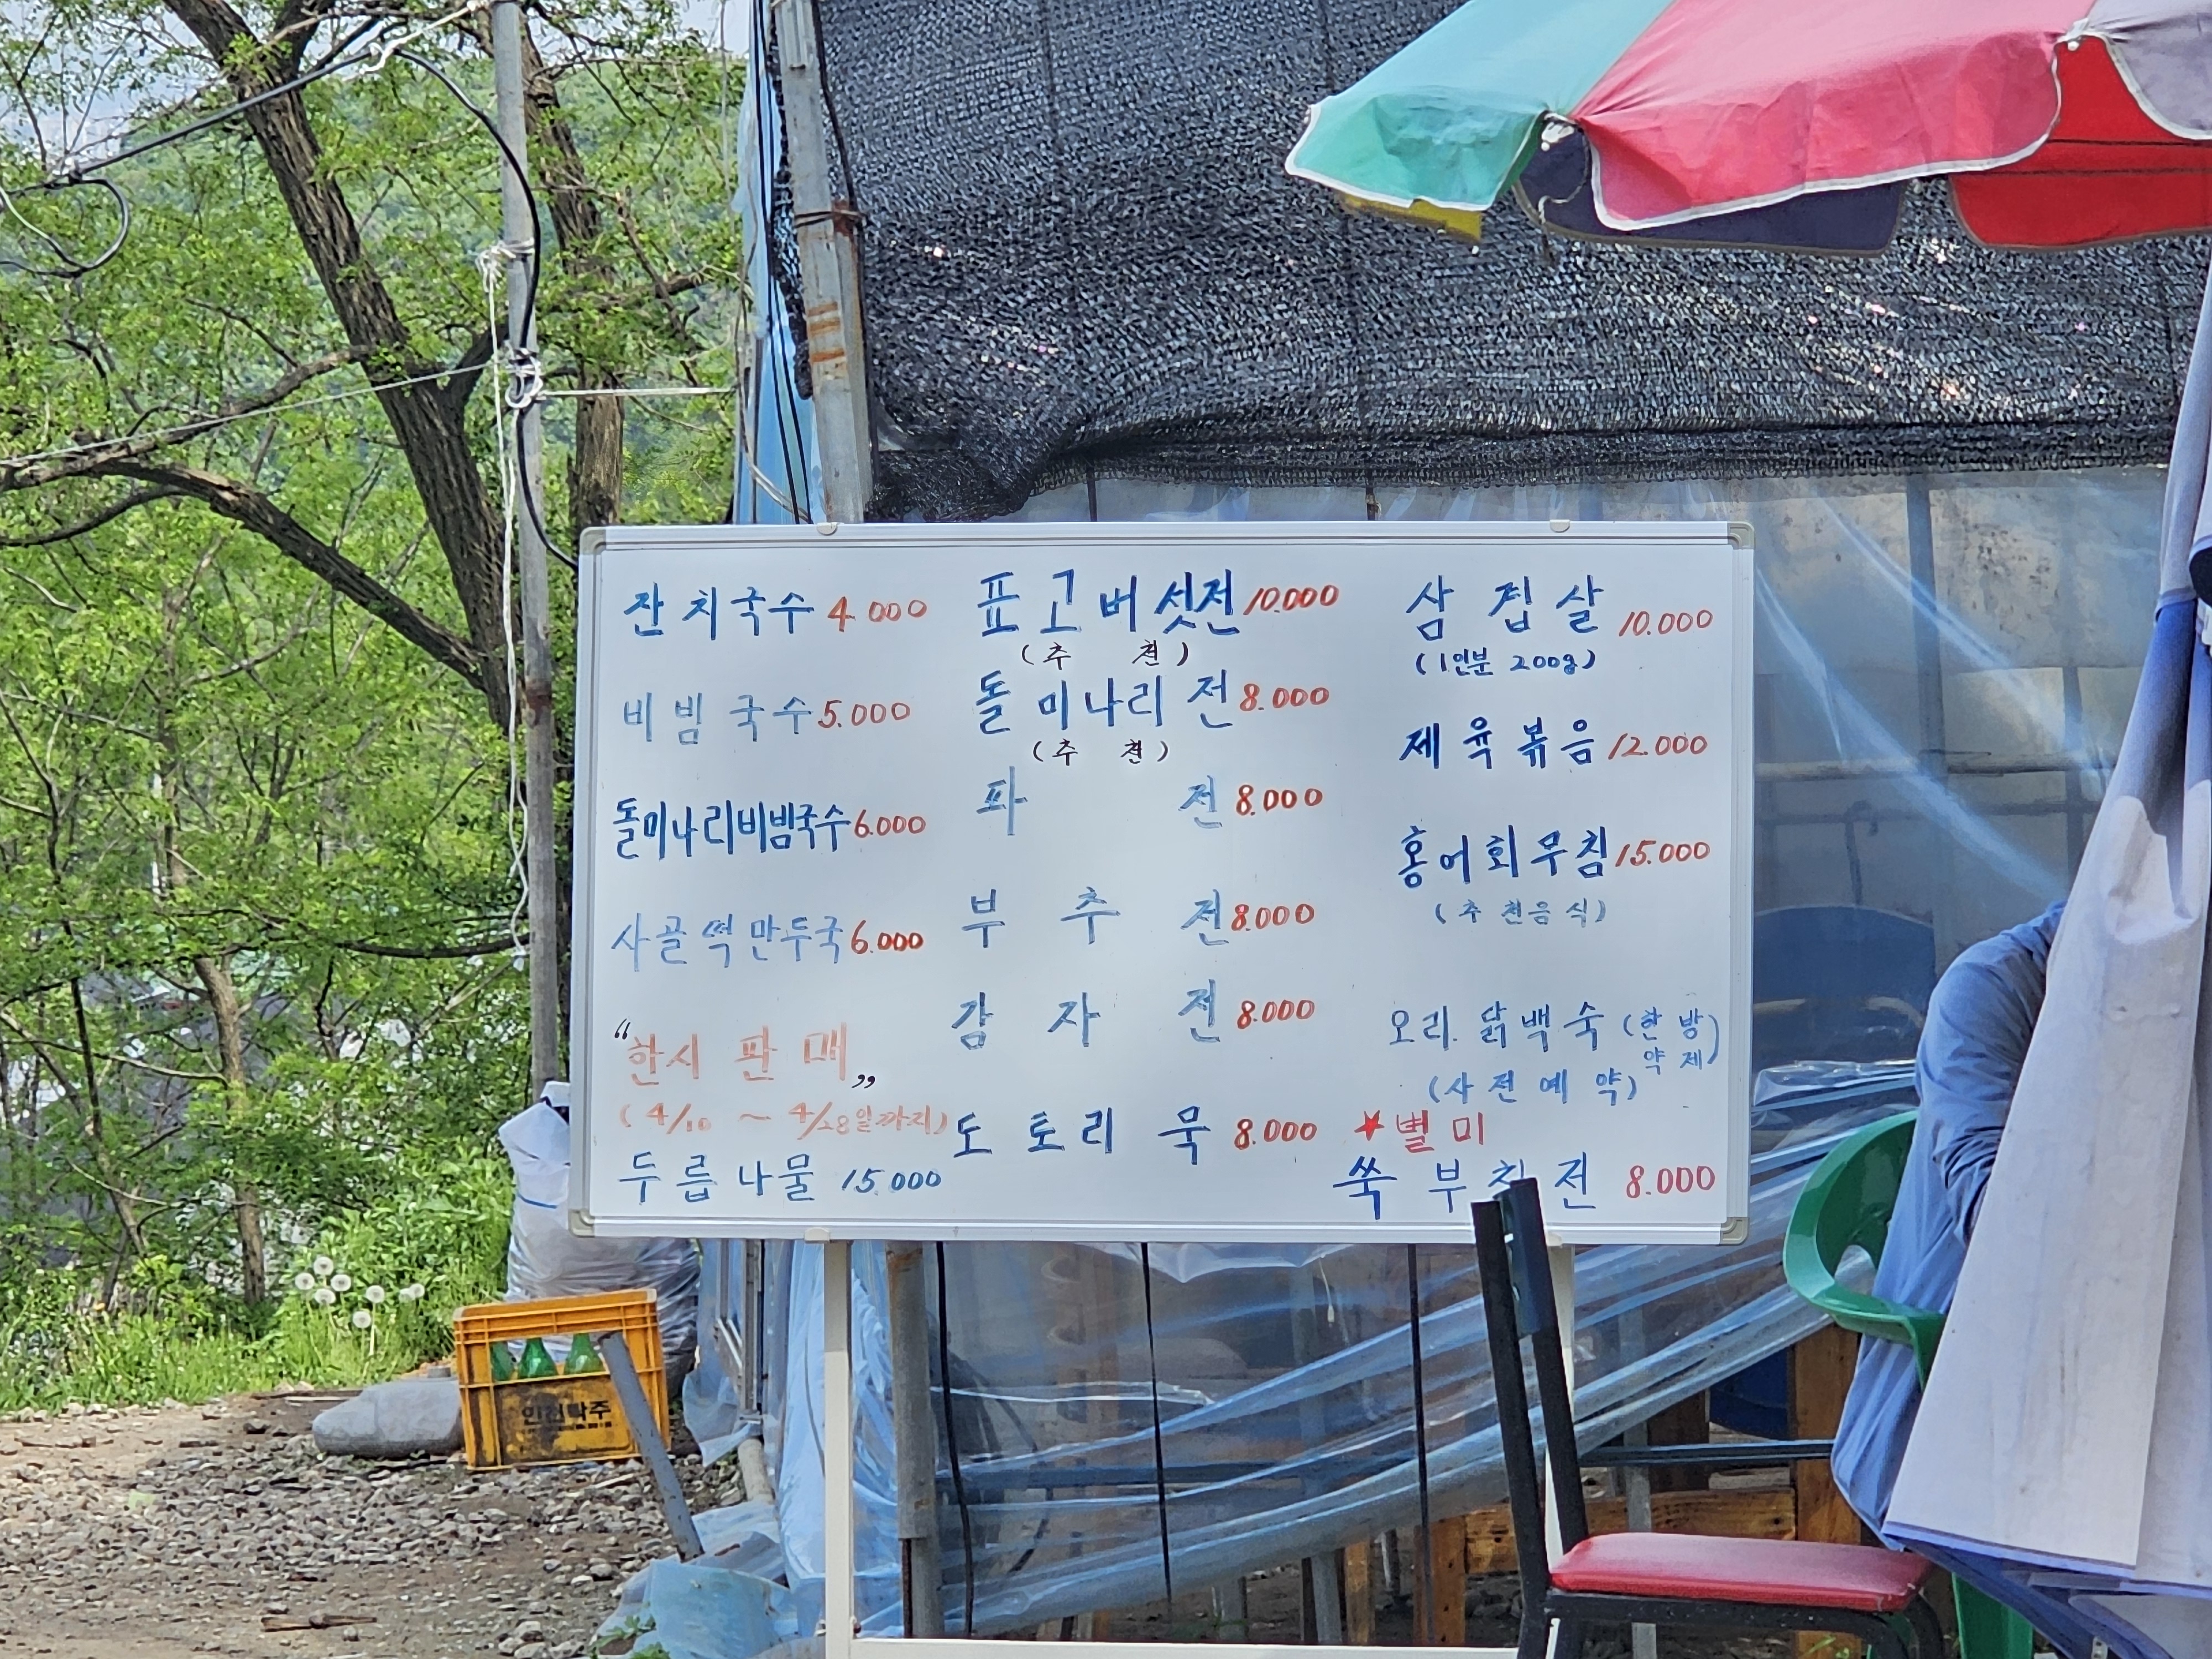 잔치국수 4.000
비빔국수 5.000
돌미나리비빔국수 6.000
사골떡만두국 6.000
"한시 판매"
(4/10 ~ 4/28일까지)
두릅나물 15.000
표고버섯전 10.000
(추 천)
돌미나리전 8.000
(추 천)
파 전 8.000
부 추 전 8.000
감 자 전 8.000
도토리묵 8.000
삼 겹 살 10.000
(1인분 200g)
제육볶음 12.000
홍어회무침 15.000
(추천음식)
오리. 닭백숙 (한방
약제)
(사전예약)
★별미
쑥 부침전 8.000
인천탁주